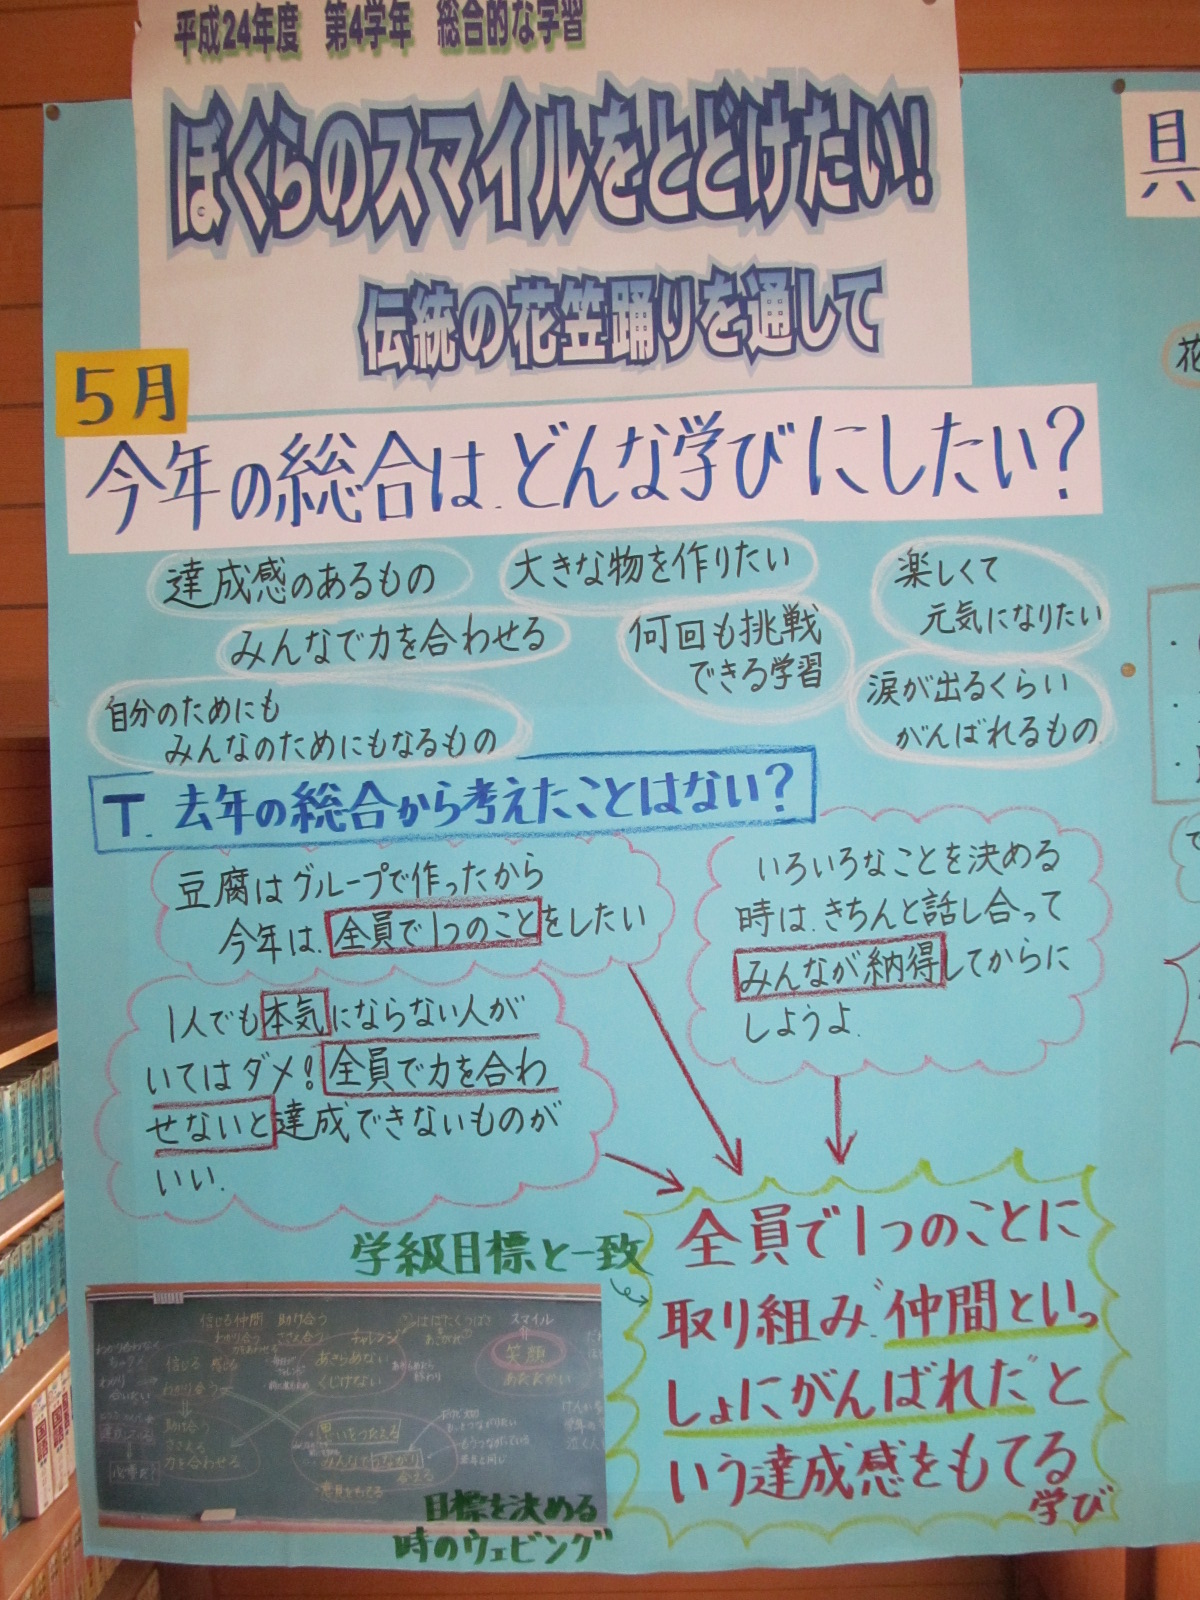 平成24年度　第4学年　総合的な学習
ぼくらのスマイルをとどけたい!
伝統の花笠踊りを通して
具
花
5月
今年の総合は、どんな学びにしたい?
達成感のあるもの
大きな物を作りたい
楽しくて
元気になりたい
みんなで力を合わせる
何回も挑戦
できる学習
涙が出るくらい
がんばれるもの
自分のためにも
みんなのためにもなるもの
T. 去年の総合から考えたことはない?
豆腐はグループで作ったから
今年は、全員で1つのことをしたい
いろいろなことを決める
時は、きちんと話し合って
みんなが納得してからに
しようよ.
1人でも本気にならない人が
いてはダメ!全員で力を合わ
せないと達成できないものが
いい.
学級目標と一致
全員で1つのことに
取り組み、仲間といっ
しょにがんばれたと
いう達成感をもてる
学び
信じる仲間　助け合う
わかり合う　ささえ合う
チャレンジ
スマイル
笑顔
あきらめない
くじけない
信じる
わかり合う
助け合う
ささえる
力を合わせる
思いをつたえる
みんなでつながり
合える
目標を決める
時のウェビング